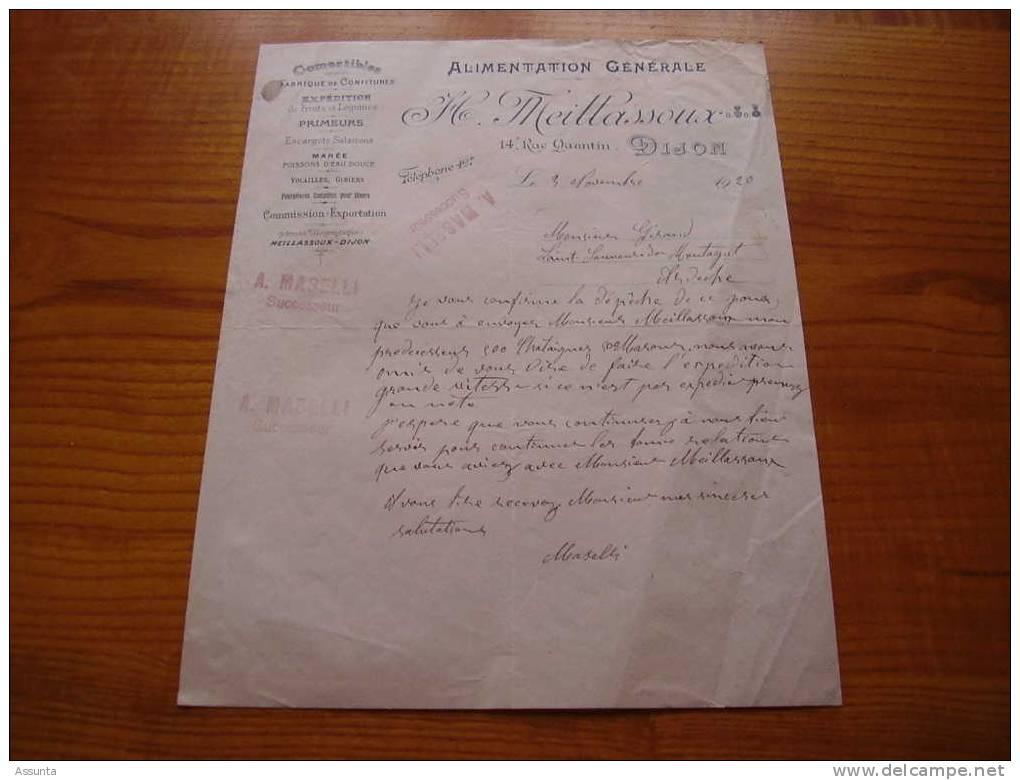 Comestibles
FABRIQUE DE CONFITURES
EXPÉDITION
de Fruits et Légumes
PRIMEURS
Escargots Salaisons
MARÉE
POISSONS D'EAU DOUCE
VOLAILLES, GIBIERS
Fournitures Complètes pour Diners
Commission-Exportation
MEILLASSOUX-DIJON
ALIMENTATION GÉNÉRALE
H. Meillassoux
14, Rue Quentin. DIJON
Téléphone
A. MASELLI
Successeur
Le 3 Novembre 1920
Monsieur Giraud
Saint Sauveur de Montagut
Ardeche
A. MASELLI
Successeur
Je vous confirme la dépêche de ce jour,
que vous à envoyer Monsieur Meillassoux mon
predecesseur 500 Chataignes 500 Marons, nous avons
omis de vous dire de faire l'expedition
grande vitesse si ce n'est pas expedié prenez
en note
A. MASELLI
Successeur
j'espere que vous continuerez à nous bien
servir pour continuer les bonne relations
que vous aviez avec Monsieur Meillassoux
recevez Monsieur mes sinceres
salutations
Maselli
Assunta
www.delcampe.net